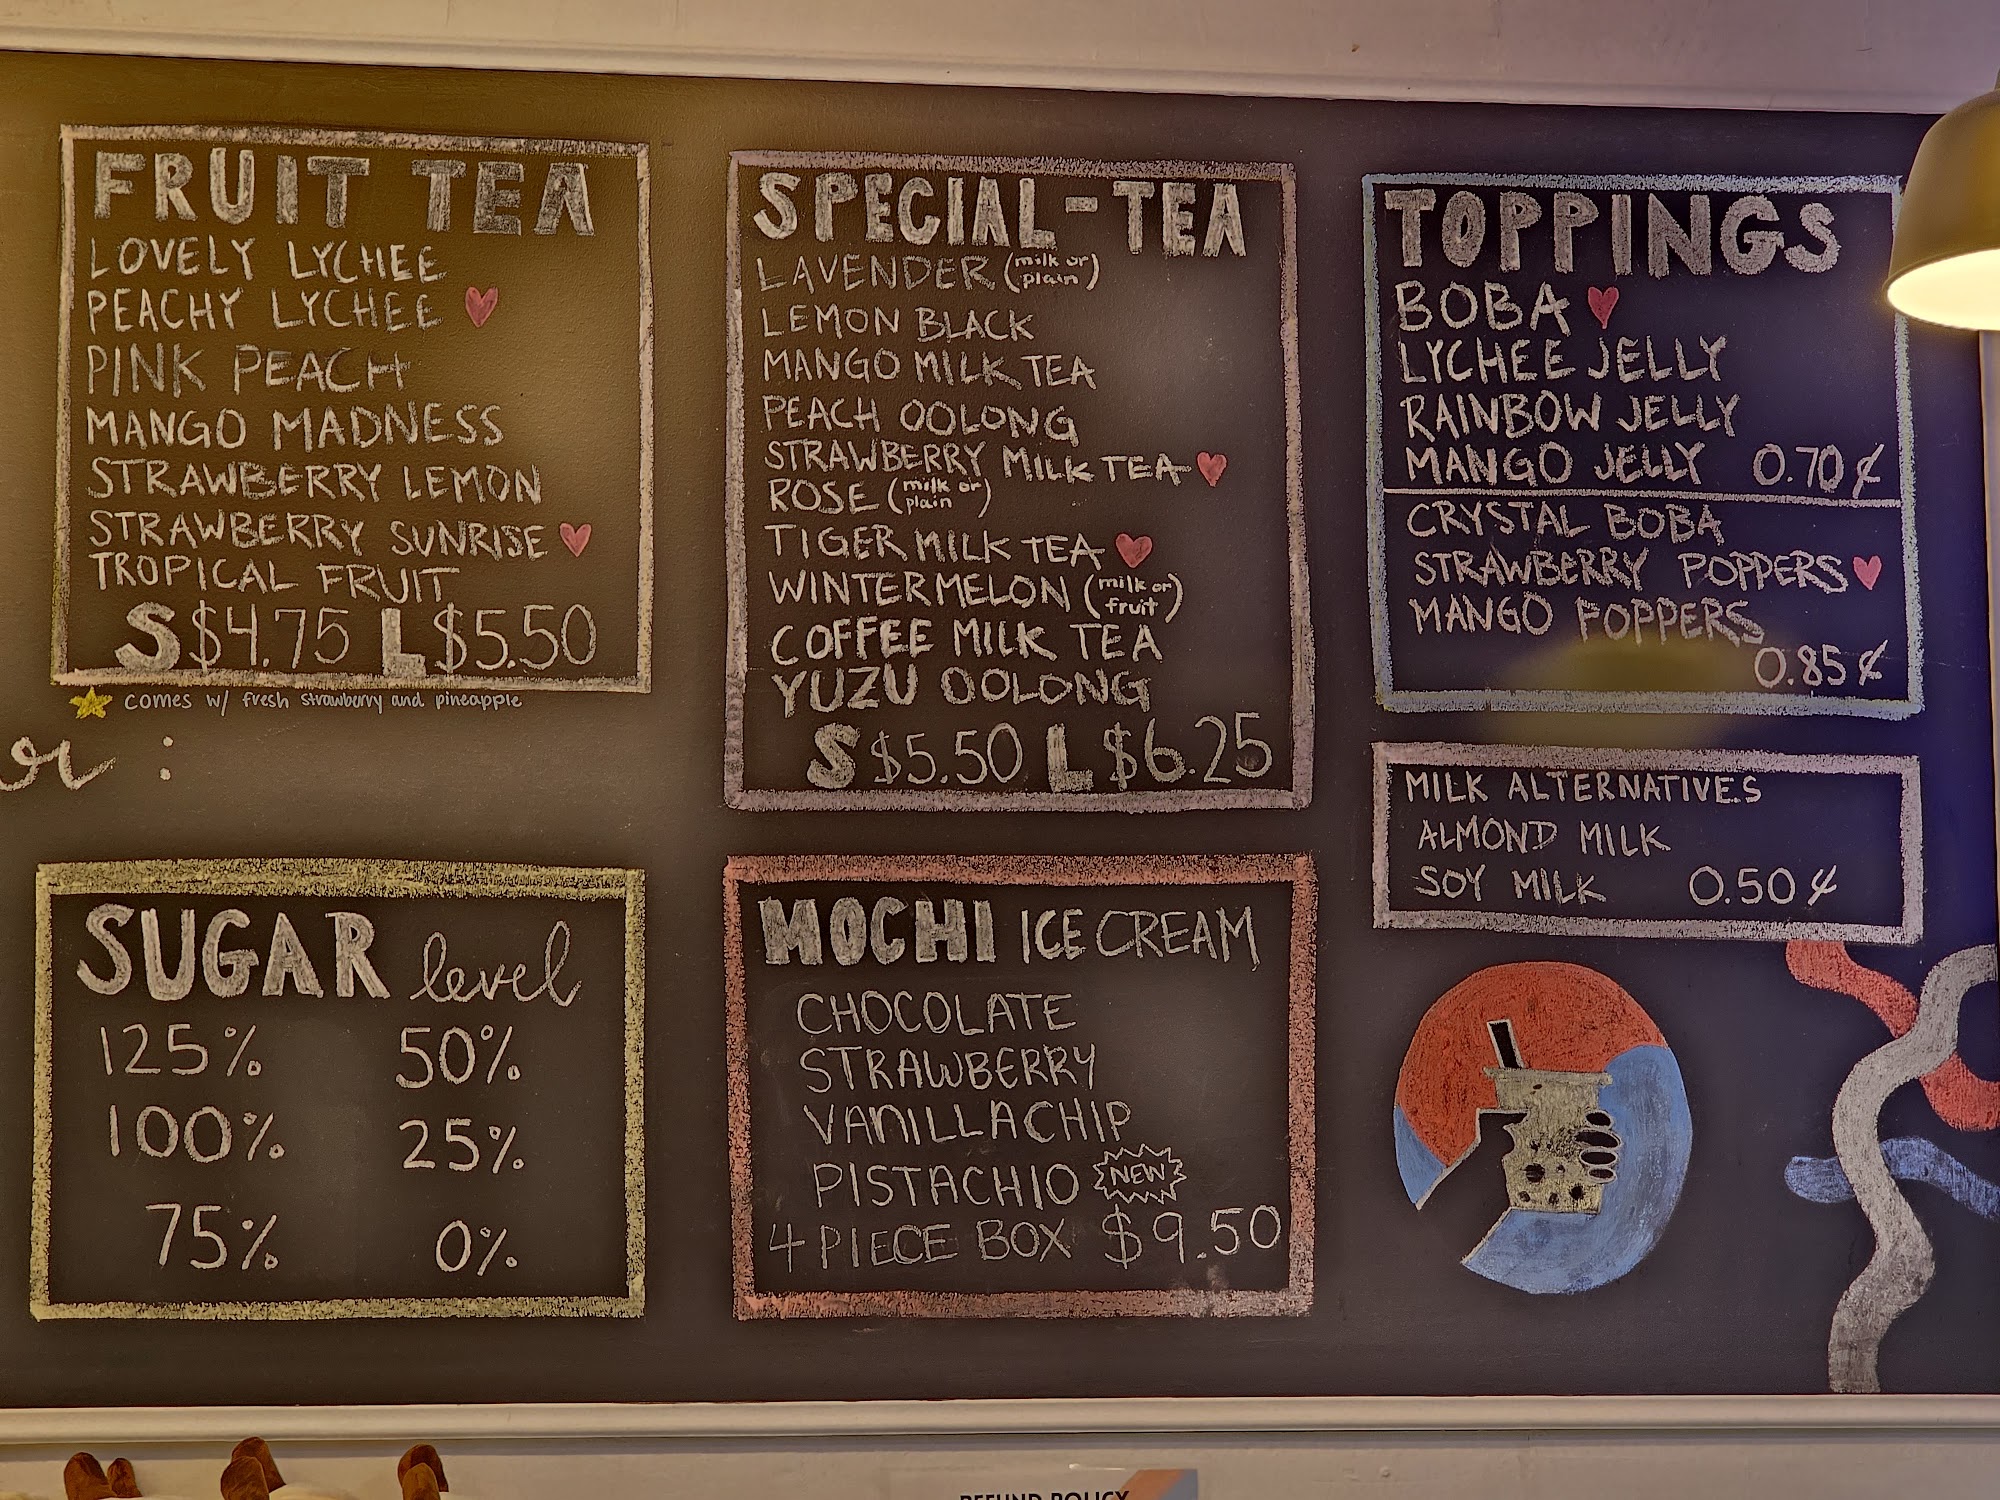 FRUIT TEA
LOVELY LYCHEE
PEACHY LYCHEE
PINK PEACH
MANGO MADNESS
STRAWBERRY LEMON
STRAWBERRY SUNRISE
TROPICAL FRUIT
S $4.75 L $5.50
comes w/ fresh strawberry and pineapple
SUGAR level
125% 50%
100% 25%
75% 0%
SPECIAL-TEA
LAVENDER (milk or plain)
LEMON BLACK
MANGO MILK TEA
PEACH OOLONG
STRAWBERRY MILK TEA
ROSE (milk or plain)
TIGER MILK TEA
WINTERMELON (milk or fruit)
COFFEE MILK TEA
YUZU OOLONG
S $5.50 L $6.25
MOCHI ICE CREAM
CHOCOLATE
STRAWBERRY
VANILLA CHIP
PISTACHIO NEW
4 PIECE BOX $9.50
TOPPINGS
BOBA
LYCHEE JELLY
RAINBOW JELLY
MANGO JELLY 0.70¢
CRYSTAL BOBA
STRAWBERRY POPPERS
MANGO POPPERS
0.85¢
MILK ALTERNATIVES
ALMOND MILK
SOY MILK 0.50¢
REFUND POLICY